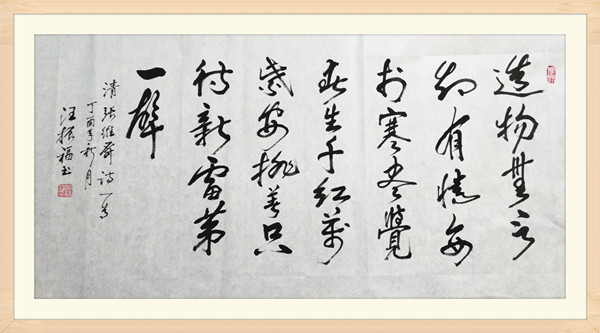 造物無言
却有情每
於寒尽覺
春生千红萬
紫安排着只
待新雷第
一聲
清張維屏詩一首
丁酉年秋月
汪振福书